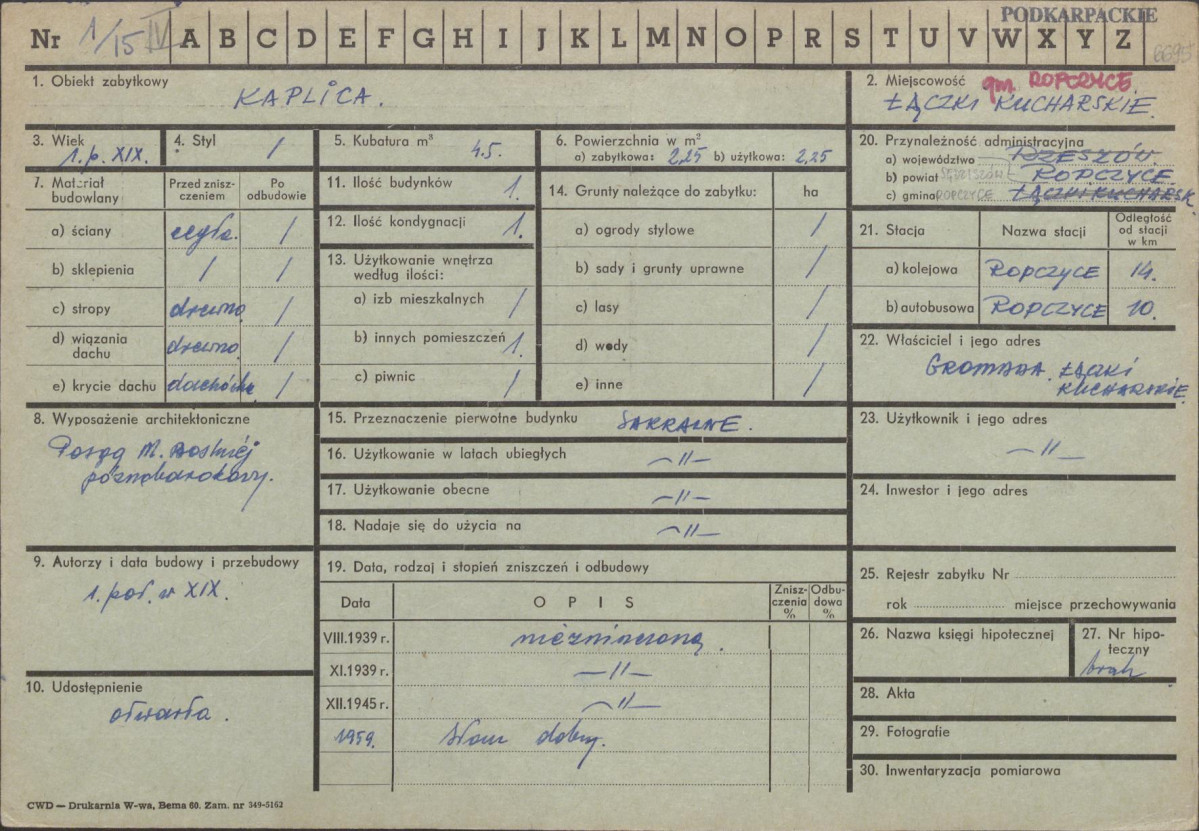 PODKARPACKIE
Nr 1/15 IV A B C D E F G H I J K L M N O P R S T U V W X Y Z
6695
1. Obiekt zabytkowy
KAPLICA.
2. Miejscowość gm. ROPCZYCE.
ŁĄCZKI KUCHARSKIE.
3. Wiek
1.p. XIX.
4. Styl /
5. Kubatura m³ 4.5.
6. Powierzchnia w m²
a) zabytkowa: 2,25 b) użytkowa: 2,25
20. Przynależność administracyjna
a) województwo RZESZÓW.
b) powiat SĘDZISZÓW ROPCZYCE.
c) gmina ROPCZYCE ŁĄCZKI KUCHARSK
7. Materiał budowlany
Przed zniszczeniem
Po odbudowie
a) ściany cegła. /
b) sklepienia / /
c) stropy drewno /
d) wiązania dachu drewno /
e) krycie dachu dachówka /
11. Ilość budynków 1.
12. Ilość kondygnacji 1.
13. Użytkowanie wnętrza
według ilości:
a) izb mieszkalnych /
b) innych pomieszczeń 1.
c) piwnic /
14. Grunty należące do zabytku: ha
a) ogrody stylowe /
b) sady i grunty uprawne /
c) lasy /
d) wody /
e) inne /
21. Stacja
Nazwa stacji
Odległość
od stacji
w km
a) kolejowa ROPCZYCE 14.
b) autobusowa ROPCZYCE 10.
22. Właściciel i jego adres
GROMADA ŁĄCZKI
KUCHARSKIE
8. Wyposażenie architektoniczne
Posąg M. Boskiej
późnobarokowy.
15. Przeznaczenie pierwotne budynku SAKRALNE.
16. Użytkowanie w latach ubiegłych —//—
17. Użytkowanie obecne —//—
18. Nadaje się do użycia na —//—
23. Użytkownik i jego adres
—//—
24. Inwestor i jego adres
9. Autorzy i data budowy i przebudowy
1. poł. w XIX.
10. Udostępnienie
otwarta.
19. Data, rodzaj i stopień zniszczeń i odbudowy
Data
OPIS
Zniszczenia %
Odbudowa %
VIII.1939 r. niezniszczona.
XI.1939 r. —//—
XII.1945 r. —//—
1959. Stan dobry.
25. Rejestr zabytku Nr
rok miejsce przechowywania
26. Nazwa księgi hipotecznej
27. Nr hipoteczny
brak
28. Akta
29. Fotografie
30. Inwentaryzacja pomiarowa
CWD — Drukarnia W-wa, Bema 60. Zam. nr 349-5162